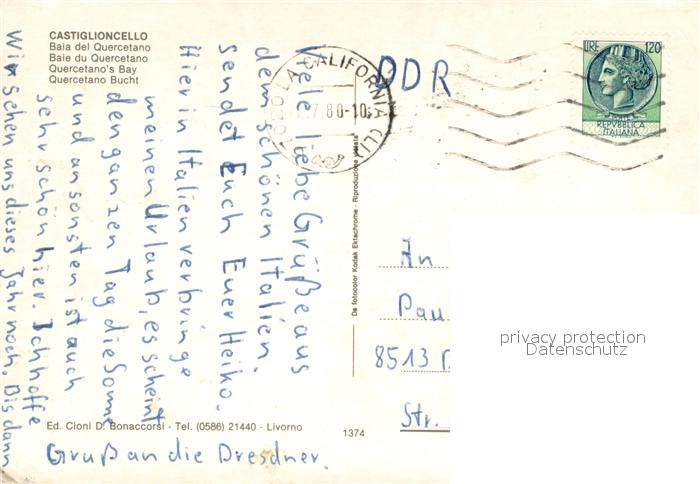 CASTIGLIONCELLO
Baia del Quercetano
Baie du Quercetano
Quercetano's Bay
Quercetano Bucht
Viele liebe Grüße aus
dem schönen Italien.
sendet Euch Euer Heiko.
Hier in Italien verbringe
meinen Urlaub, es scheint
den ganzen Tag die Sonne
und ansonsten ist auch
sehr schön hier. Ich hoffe
Wir sehen uns dieses Jahr noch. Bis dann
Gruß an die Dresdner.
Ed. Cioni D. Bonaccorsi - Tel. (0586) 21440 - Livorno
1374
Da fotocolor Kodak Ektachrome - Riproduzione vietata
LA CALIFORNIA (LI)
7.80-10
DDR
LIRE 120
REPVBBLICA
ITALIANA
An
Pau
8513
Str.
privacy protection
Datenschutz